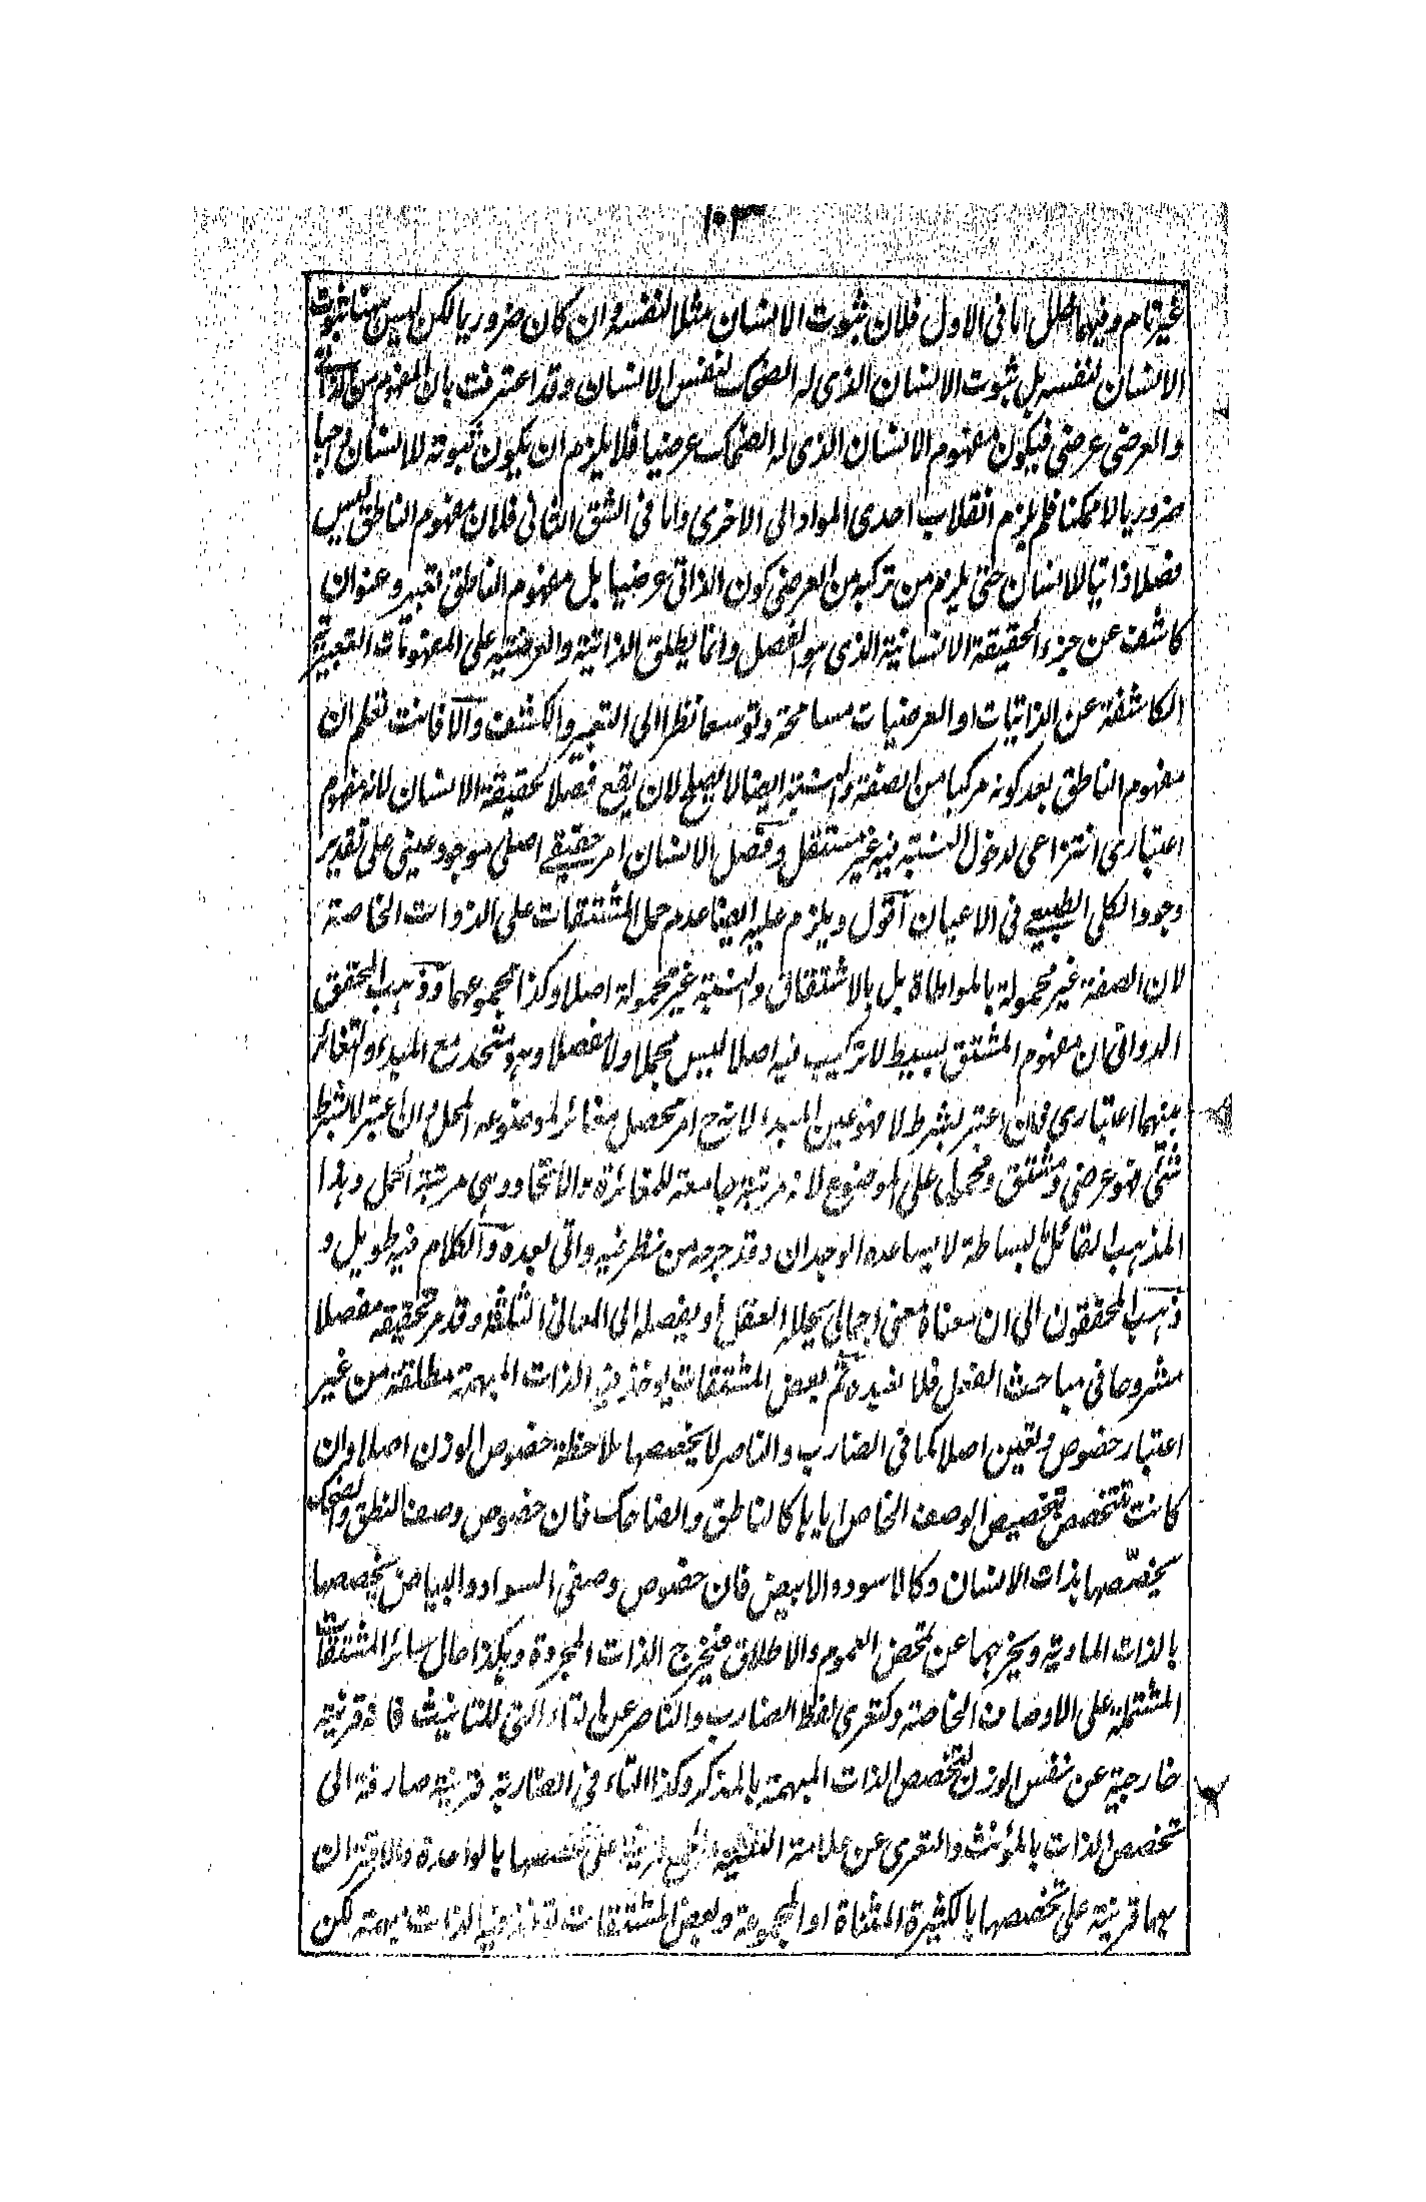 ١٠٣
غير تام وفيهما خلل اما فى الاول فلان ثبوت الانسان مثلا لنفسه وان كان ضروريا لكن ليس ههنا ثبوت
الانسان لنفسه بل ثبوت الانسان الذى له الضحك لنفس الانسان وقد اعترفت بان المفهوم من
والعرضى عرضى فيكون مفهوم الانسان الذى له الضحك عرضيا فلا يلزم ان يكون ثبوته للانسان واجبا
ضروريا لا ممكنا فلم يلزم انقلاب احدى المواد الى الاخرى واما فى الشق الثانى فلان مفهوم الناطق ليس
فصلا ذاتيا للانسان حتى يلزم من تركبه من العرضى كون الذاتى عرضيا بل مفهوم الناطق تعبير وعنوان
كاشف عن جزء الحقيقة الانسانية الذى هو الفصل وانما يطلق الذاتية والعرضية على المفهومات التعبيرية
الكاشفة عن الذاتيات او العرضيات مسامحة وتوسعا نظرا الى التعبير والكشف والا فانت تعلم ان
مفهوم الناطق بعد كونه مركبا من الصفة والنسبة ايضا لا يصلح لان يقع فصلا لحقيقة الانسان لانه مفهوم
اعتبارى انتزاعى لدخول النسبة فيه غير مستقل وفصل الانسان امر حقيقى اصلى موجود عينى على تقدير
وجود الكلى الطبيعى فى الاعيان اقول ويلزم عليه ايضا عدم حمل المشتقات على الذوات الخاصة
لان الصفة غير محمولة بالمواطاة بل بالاشتقاق والنسبة غير محمولة اصلا وكذا مجموعهما وذهب المحقق
الدوانى ان مفهوم المشتق بسيط لا تركيب فيه اصلا ليس مجملا ولا مفصلا وهو متحد مع المبدء والتغائر
بينهما اعتبارى فان اعتبر بشرط لا فهو عين المبدء لانه ح امر محصل مغائر لموضوعه المحل وان اعتبر لا بشرط
شئ فهو عرضى ومشتق ومحمول على الموضوع لانه مرتبة جامعة للمغائرة والاتحاد وهى مرتبة الحمل وهذا
المذهب القائل بالبساطة لا يساعده الوجدان وقد جرحه من نظر فيه واتى بعده والكلام فيه طويل و
ذهب المحققون الى ان معناه معنى اجمالى يحلله العقل او يفصله الى المعانى الثلثة وقد مر تحقيقه مفصلا
مشروحا فى مباحث الفعل فلا نعيده ثم بعض المشتقات يوخذ فيه الذات المبهمة مطلقة من غير
اعتبار خصوص وتعين اصلا كما فى الضارب والناصر لا يخصصها ملاحظة خصوص الوزن اصلا وان
كانت تتخصص بتخصيص الوصف الخاص اياها كالناطق والضاحك فان خصوص وصف النطق والضحك
يخصّصها بذات الانسان وكالاسود والابيض فان خصوص وصفى السواد والبياض يخصصها
بالذات المادية ويخرجها عن محض العموم والاطلاق فيخرج الذات المجردة وهكذا حال سائر المشتقات
المشتملة على الاوصاف الخاصة وكتعرى لفظ الضارب والناصر عن التاء التى للتانيث فانه قرينة
خارجية عن نفس الوزن لتخصص الذات المبهمة بالمذكر وكذا التاء فى الضاربة قرينة صارفة الى
تخصص الذات بالمؤنث والتعرى عن علامة التثنية والجمع قرينة على تخصصها بالواحدة والاقتران
بها قرينة على تخصصها بالكثيرة المثناة او المجموعة وبعض المشتقات فيه الذات مبهمة لكن